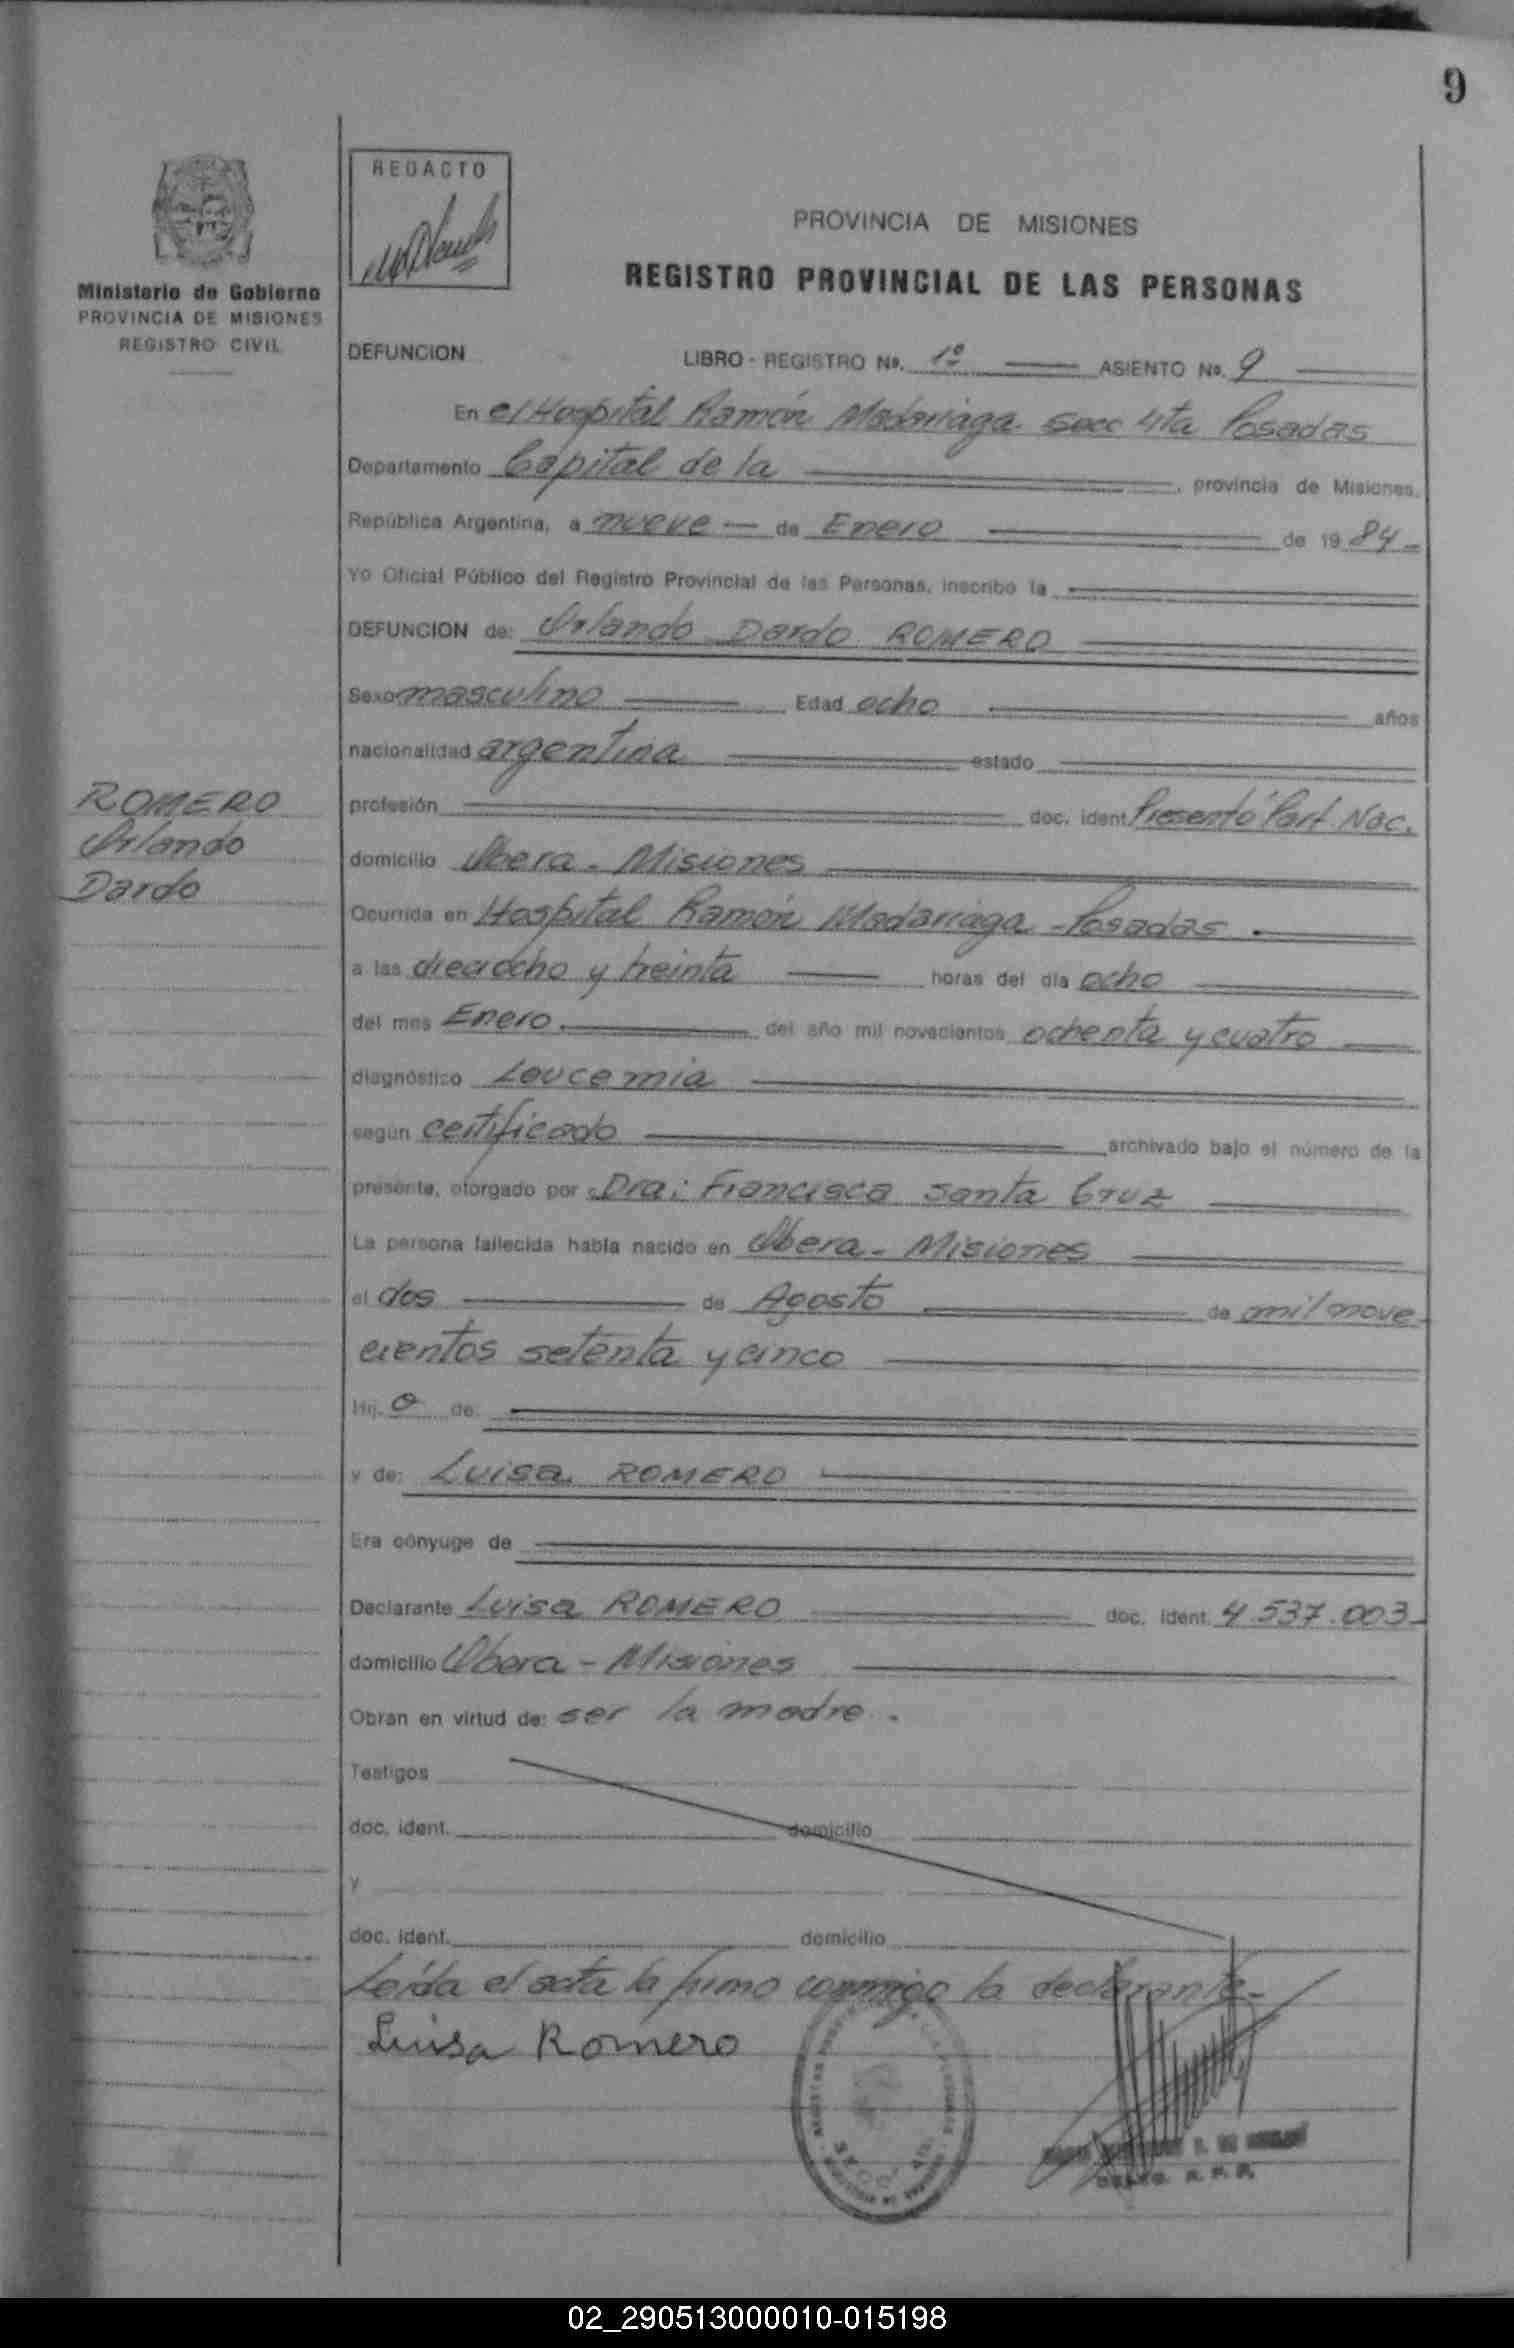 9
REDACTO
PROVINCIA DE MISIONES
REGISTRO PROVINCIAL DE LAS PERSONAS
Ministerio de Gobierno
PROVINCIA DE MISIONES
REGISTRO CIVIL
DEFUNCION LIBRO - REGISTRO No. 1º ASIENTO No. 9
En el Hospital Ramón Madariaga secc 4ta Posadas
Departamento Capital de la provincia de Misiones.
República Argentina, a nueve — de Enero de 1984-
Yo Oficial Público del Registro Provincial de las Personas, inscribo la
DEFUNCION de: Orlando Dardo ROMERO
Sexo masculino Edad ocho años
nacionalidad argentina estado
ROMERO
Orlando
Dardo
profesión doc. ident. Presentó Part. Nac.
domicilio Obera - Misiones
Ocurrida en Hospital Ramón Madariaga - Posadas.
a las dieciocho y treinta horas del día ocho
del mes Enero. del año mil novecientos ochenta y cuatro
diagnóstico Leucemia
según certificado archivado bajo el número de la
presente, otorgado por Dra: Francisca Santa Cruz
La persona fallecida había nacido en Obera - Misiones
el dos de Agosto de mil nove-
cientos setenta y cinco
Hij o de:
y de: Luisa ROMERO
Era cónyuge de
Declarante Luisa ROMERO doc. ident. 4.537.003-
domicilio Obera - Misiones
Obran en virtud de: ser la madre.
Testigos
doc. ident. domicilio
y
doc. ident. domicilio
Leída el acta la firmo conmigo la declarante-
Luisa Romero
02_290513000010-015198